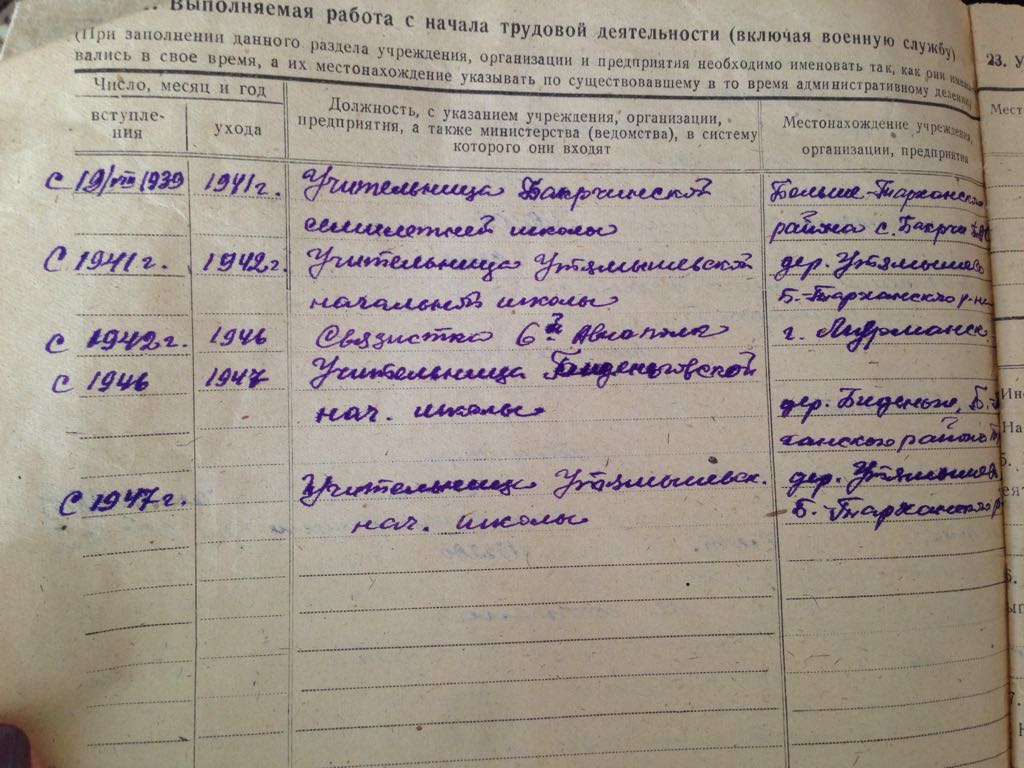 Выполняемая работа с начала трудовой деятельности (включая военную службу)
(При заполнении данного раздела учреждения, организации и предприятия необходимо именовать так, как они
вались в свое время, а их местонахождение указывать по существовавшему в то время административному
Число, месяц и год
вступле-
ния
ухода
Должность, с указанием учреждения, организации,
предприятия, а также министерства (ведомства), в систему
которого они входят
Местонахождение учреждения,
организации, предприятия
с 19/VIII 1939 1941 г. Учительница Бакрчинской Больше-Тарханского
семилетней школы района с. Бакрчи
с 1941 г. 1942 г. Учительница Утямышевской дер. Утямышево
начальной школы Б-Тарханского р-на
с 1942 г. 1946 Связистка 6й Авиаполк г. Мурманск.
с 1946 1947 Учительница
нач. школы дер. Биденьге, Б.-
ханского района
с 1947 г. Учительница Утямышевск. дер. Утямышева
нач. школы Б-Тарханского р
23. У
Мест
На